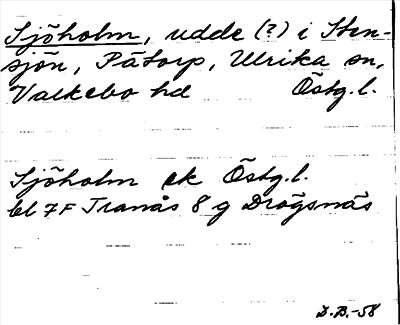 Sjöholm, udde (?) i Sten-
sjön, Påtorp, Ulrika sn,
Valkebo hd Östg.l.
Sjöholm ek Östg.l.
bl 7F Tranås 8 g Drögsnäs
D.B.-58